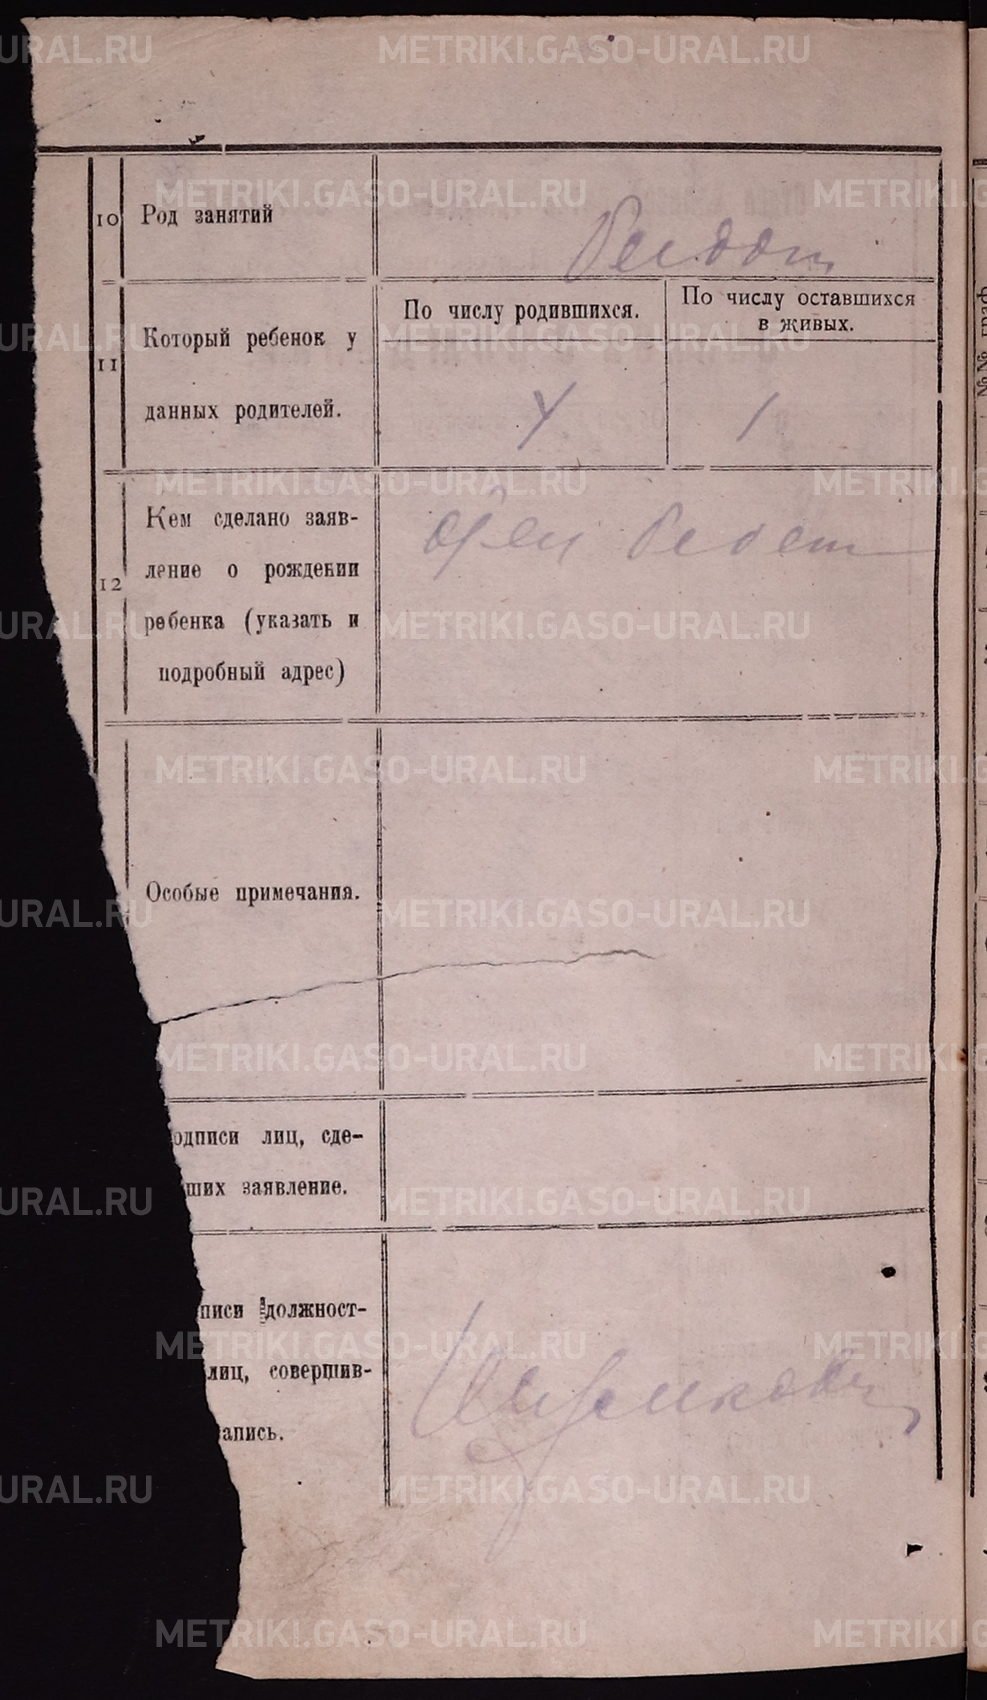 METRIKI.GASO-URAL.RU
10 Род занятий
11 Который ребенок у
данных родителей.
По числу родившихся.
По числу оставшихся
в живых.
4
1
12 Кем сделано заяв-
ление о рождении
ребенка (указать и
подробный адрес)
Особые примечания.
одписи лиц, сде-
ших заявление.
писи должност-
лиц, совершив-
апись.
№№ граф